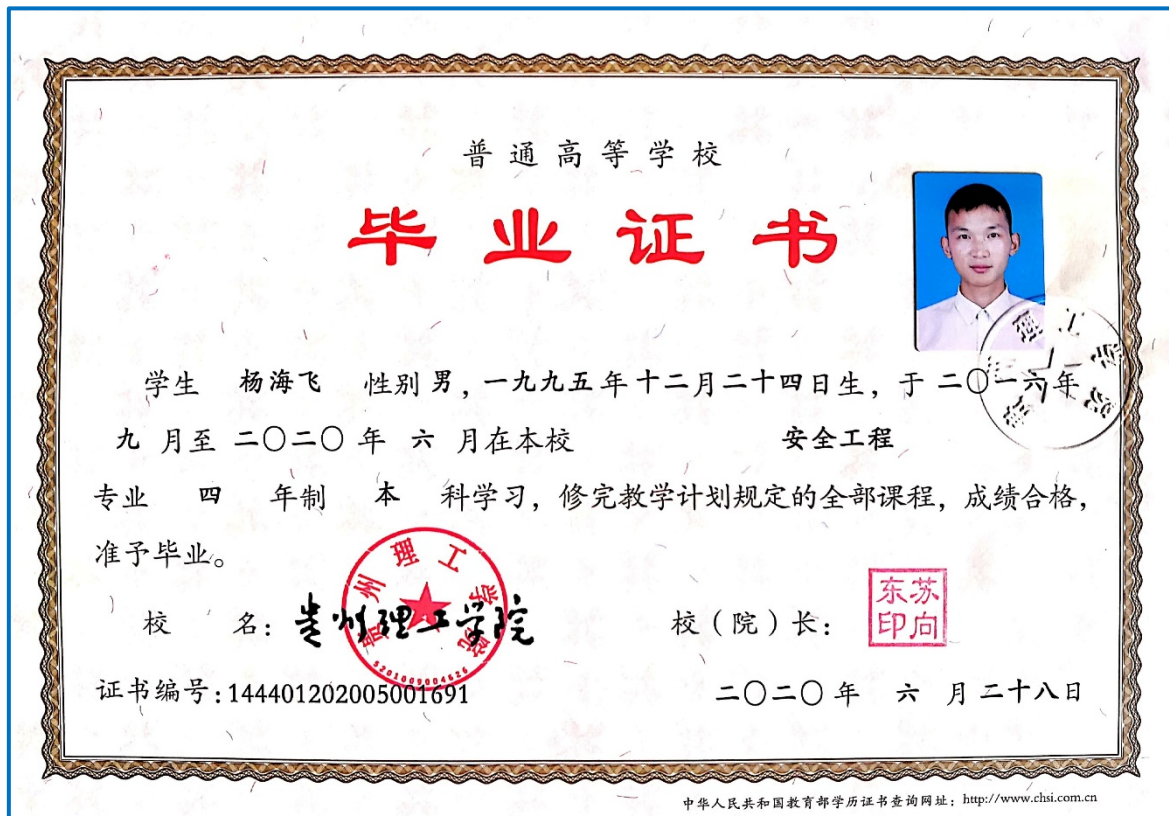 普通高等学校
毕业证书
学生 杨海飞 性别 男，一九九五年十二月二十四日生，于二〇一六年
九 月至 二〇二〇 年 六 月在本校 安全工程
专业 四 年制 本 科学习，修完教学计划规定的全部课程，成绩合格，
准予毕业。
贵州理工学院
校 名：贵州理工学院
校（院）长：
苏向东印
5201009004626
证书编号：144401202005001691
二〇二〇年 六 月二十八日
中华人民共和国教育部学历证书查询网址：http://www.chsi.com.cn